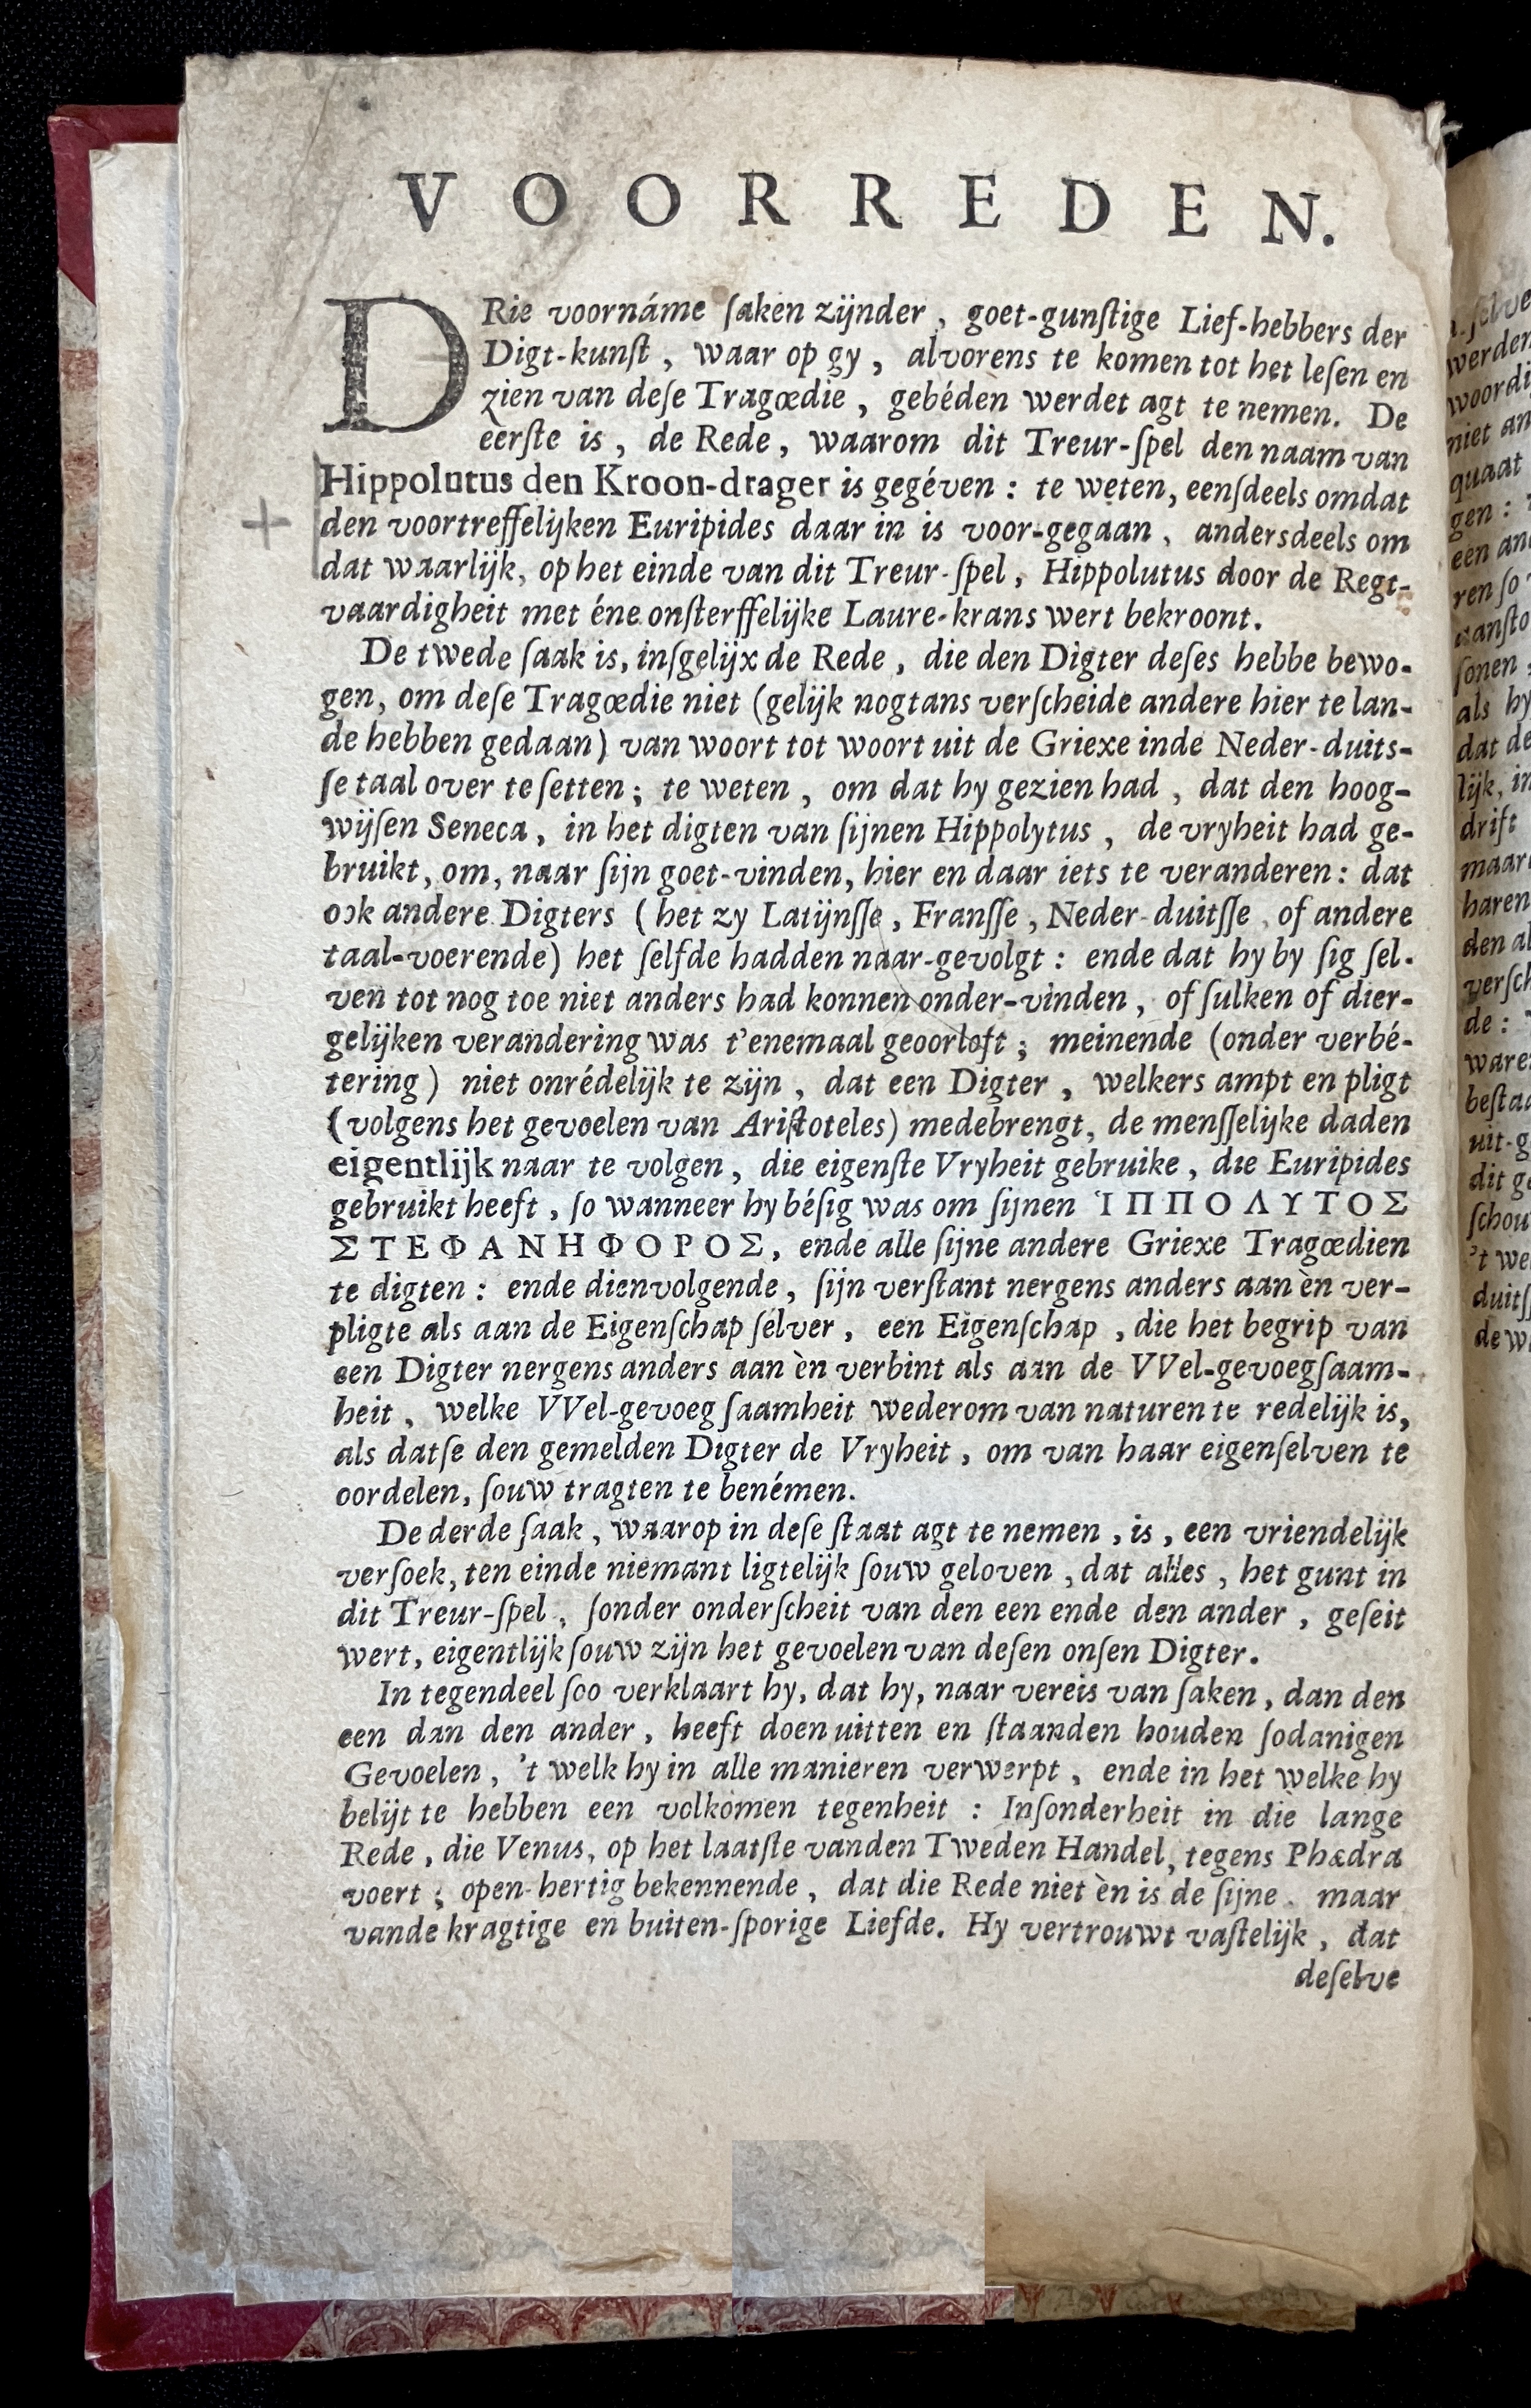 VOORREDEN.
DRie voornáme ſaken zijnder, goet-gunſtige Lief-hebbers der
Digt-kunſt, waar op gy, alvorens te komen tot het leſen en
zien van deſe Tragœdie, gebéden werdet agt te nemen. De
eerſte is, de Rede, waarom dit Treur-ſpel den naam van
Hippolutus den Kroon-drager is gegéven: te weten, eenſdeels omdat
den voortreffelijken Euripides daar in is voor-gegaan, andersdeels om
dat waarlijk, op het einde van dit Treur-ſpel, Hippolutus door de Regt-
vaardigheit met éne onſterffelijke Laure-krans wert bekroont.
De twede ſaak is, inſgelijx de Rede, die den Digter deſes hebbe bewo-
gen, om deſe Tragœdie niet (gelijk nogtans verſcheide andere hier te lan-
de hebben gedaan) van woort tot woort uit de Griexe inde Neder-duits-
ſe taal over te ſetten; te weten, om dat hy gezien had, dat den hoog-
wijſen Seneca, in het digten van ſijnen Hippolytus, de vryheit had ge-
bruikt, om, naar ſijn goet-vinden, hier en daar iets te veranderen: dat
ook andere Digters (het zy Latijnſſe, Franſſe, Neder-duitſſe, of andere
taal-voerende) het ſelfde hadden naar-gevolgt: ende dat hy by ſig ſel-
ven tot nog toe niet anders had konnen onder-vinden, of ſulken of dier-
gelijken verandering was t'enemaal geoorloft; meinende (onder verbé-
tering) niet onrédelijk te zijn, dat een Digter, welkers ampt en pligt
(volgens het gevoelen van Ariſtoteles) medebrengt, de menſſelijke daden
eigentlijk naar te volgen, die eigenſte Vryheit gebruike, die Euripides
gebruikt heeft, ſo wanneer hy béſig was om ſijnen ἹΠΠΟΛΥΤΟΣ
ΣΤΕΦΑΝΗΦΟΡΟΣ, ende alle ſijne andere Griexe Tragœdien
te digten: ende dienvolgende, ſijn verſtant nergens anders aan èn ver-
pligte als aan de Eigenſchap ſélver, een Eigenſchap, die het begrip van
een Digter nergens anders aan èn verbint als aan de VVel-gevoegſaam-
heit, welke VVel-gevoegſaamheit wederom van naturen te redelijk is,
als datſe den gemelden Digter de Vryheit, om van haar eigenſelven te
oordelen, ſouw tragten te benémen.
De derde ſaak, waarop in deſe ſtaat agt te nemen, is, een vriendelijk
verſoek, ten einde niemant ligtelijk ſouw geloven, dat alles, het gunt in
dit Treur-ſpel, ſonder onderſcheit van den een ende den ander, geſeit
wert, eigentlijk ſouw zijn het gevoelen van deſen onſen Digter.
In tegendeel ſoo verklaart hy, dat hy, naar vereis van ſaken, dan den
een dan den ander, heeft doen uitten en ſtaanden houden ſodanigen
Gevoelen, 't welk hy in alle manieren verwerpt, ende in het welke hy
belijt te hebben een volkomen tegenheit: Inſonderheit in die lange
Rede, die Venus, op het laatſte vanden Tweden Handel, tegens Phædra
voert; open-hertig bekennende, dat die Rede niet èn is de ſijne. maar
vande kragtige en buiten-ſporige Liefde. Hy vertrouwt vaſtelijk, dat
deſelve